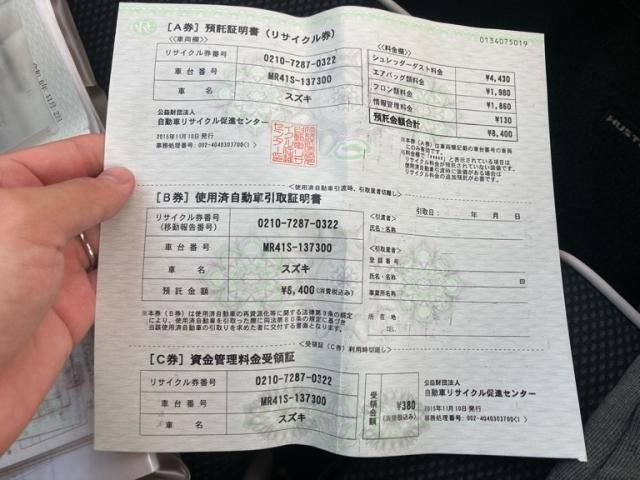 [A券] 預託証明書（リサイクル券）
0134075019
<車両欄>
リサイクル券番号 0210-7287-0322
車台番号 MR41S-137300
車名 スズキ
公益財団法人
自動車リサイクル促進センター
2015年11月10日 発行
事務処理番号: 002-4040303700(1)
<料金欄>
シュレッダーダスト料金 ¥4,430
エアバッグ類料金 ¥1,980
フロン類料金 ¥1,860
情報管理料金 ¥130
預託金額合計 ¥8,400
*本券（A券）は車両欄記載の車台番号の車両
にのみ有効です。
リサイクル料金が預託されていない装備です。
使用済自動車引渡時に装備がある場合は
リサイクル料金の追加預託が必要です。
<使用済自動車引渡時、引取業者切離し>
[B券] 使用済自動車引取証明書
リサイクル券番号
(移動報告番号) 0210-7287-0322
車台番号 MR41S-137300
車名 スズキ
預託金額 ¥8,400(消費税込み)
引取日: 年 月 日
<引渡者>
氏名・名称
<引取業者>
登録番号
氏名・名称
印
事業所名称
所在地
TEL.
*本券（B券）は使用済自動車の再資源化等に関する法律第9条の規定
により、使用済自動車を引取った際に同法第80条の規定に基づき
当該使用済自動車の引取りを求めた者に交付する書面となります。
<受領証（C券）利用時切離し>
[C券] 資金管理料金受領証
リサイクル券番号 0210-7287-0322
車台番号 MR41S-137300
車名 スズキ
受領金額 ¥380
(消費税込み)
公益財団法人
自動車リサイクル促進センター
2015年11月10日 発行
事務処理番号: 002-4040303700(1)